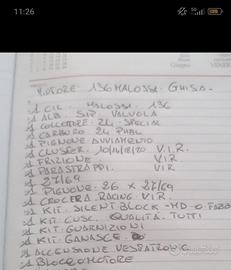 11:26
MOTORE 136 MALOSSI GHISA.
1 CIL. MALOSSI 136
1 ALB. SIP. VALVOLA
1 COLLETTORE 24 SPECIAL
1 CARBURO 24 PHBL
1 PIGNONE AVVIAMENTO
1 CLUSTER 10/14/18/20 V.I.R.
1 FRIZIONE V.I.R.
1 PARASTRAPPI. V.I.R
1 27/69
1 PIGNONE 26 X 27/69
1 CROCERA RACING V.I.R.
1 KIT. SILENT BLOCK - HD - O
1 KIT. CUSC. QUALITÀ. TUTTI
1 KIT. GUARNIZIONI
1 KIT. GANASCE
1 ACCENSIONE VESPATRONIC
1 BLOCCOMOTORE
subito